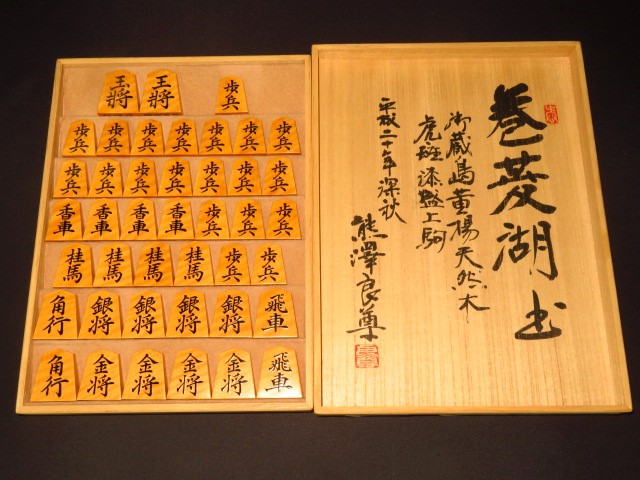 王將 王將 歩兵
歩兵 歩兵 歩兵 歩兵 歩兵 歩兵 歩兵
歩兵 歩兵 歩兵 歩兵 歩兵 歩兵 歩兵
香車 香車 香車 香車 歩兵 歩兵 歩兵
桂馬 桂馬 桂馬 桂馬 歩兵 歩兵
角行 銀将 銀将 銀将 銀将 飛車
角行 金将 金将 金将 金将 飛車
巻菱湖書
御蔵島黄楊天然木
虎斑漆盛上駒
平成二十 年深秋
熊澤良尊